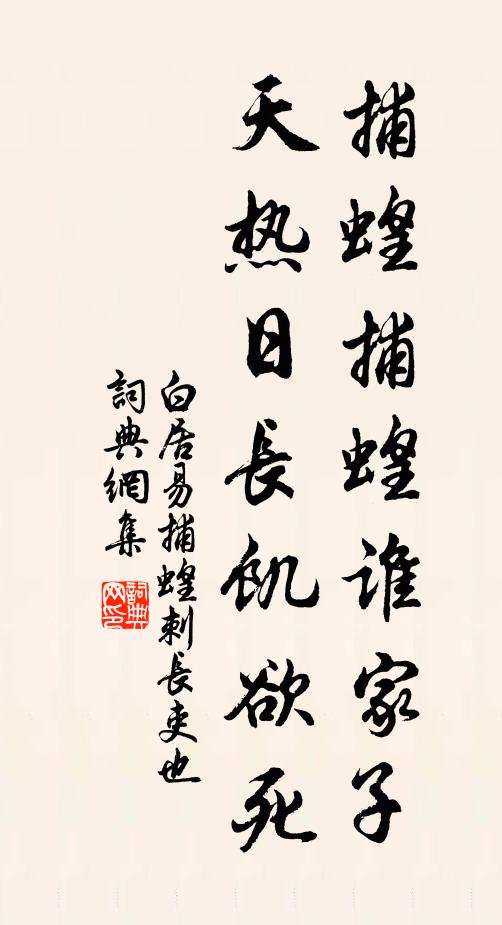 捕蝗捕蝗谁家子
天热日長飢欲死
白居易捕蝗刺長吏也
詞典網集
詞典网印